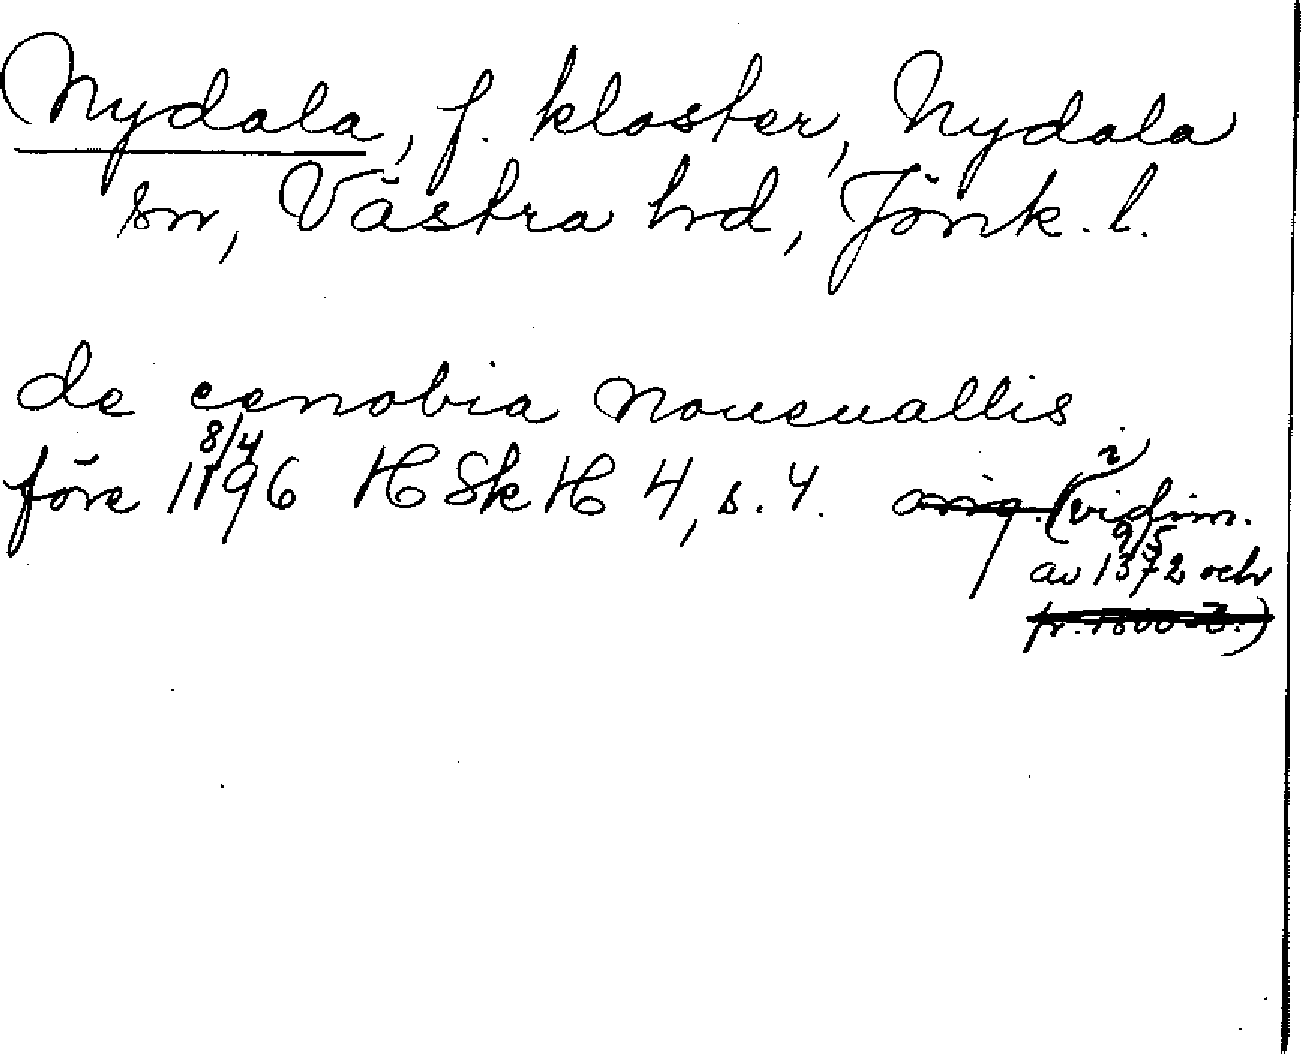 Nydala, f. kloster, Nydala
sn, Västra hd, Jönk. l.
de cenobia noueuallis
före 8/4 1196 HSkH 4, s. 4. orig. (i vidim.
av 9/5 1372 och
fr. 1600-t.)